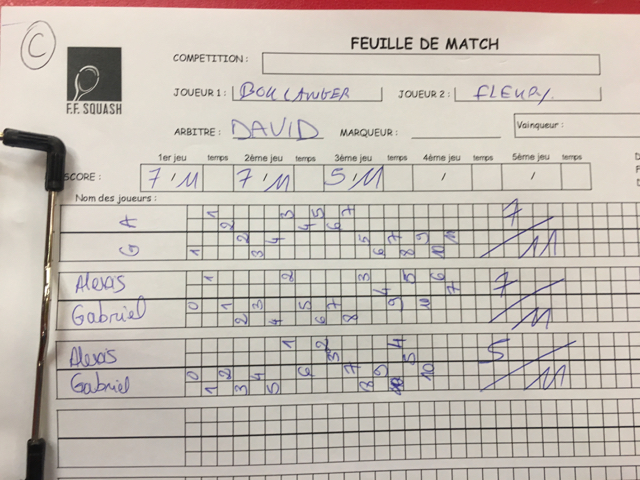 C
FEUILLE DE MATCH
COMPETITION :
F.F. SQUASH
JOUEUR 1 : BOULANGER JOUEUR 2 : FLEURY
ARBITRE : DAVID MARQUEUR : Vainqueur :
1er jeu temps 2ème jeu temps 3ème jeu temps 4ème jeu temps 5ème jeu temps
SCORE : 7 / 11 7 / 11 5 / 11 / /
Nom des joueurs :
A 1 2 3 4 5 6 7 7
G 1 2 3 4 5 6 7 8 9 10 11 11
Alexis 1 2 3 4 5 6 7 7
Gabriel 0 1 2 3 4 5 6 7 8 9 10 11
Alexis 1 2 3 4 5 5
Gabriel 0 1 2 3 4 5 6 7 8 9 10 10 11